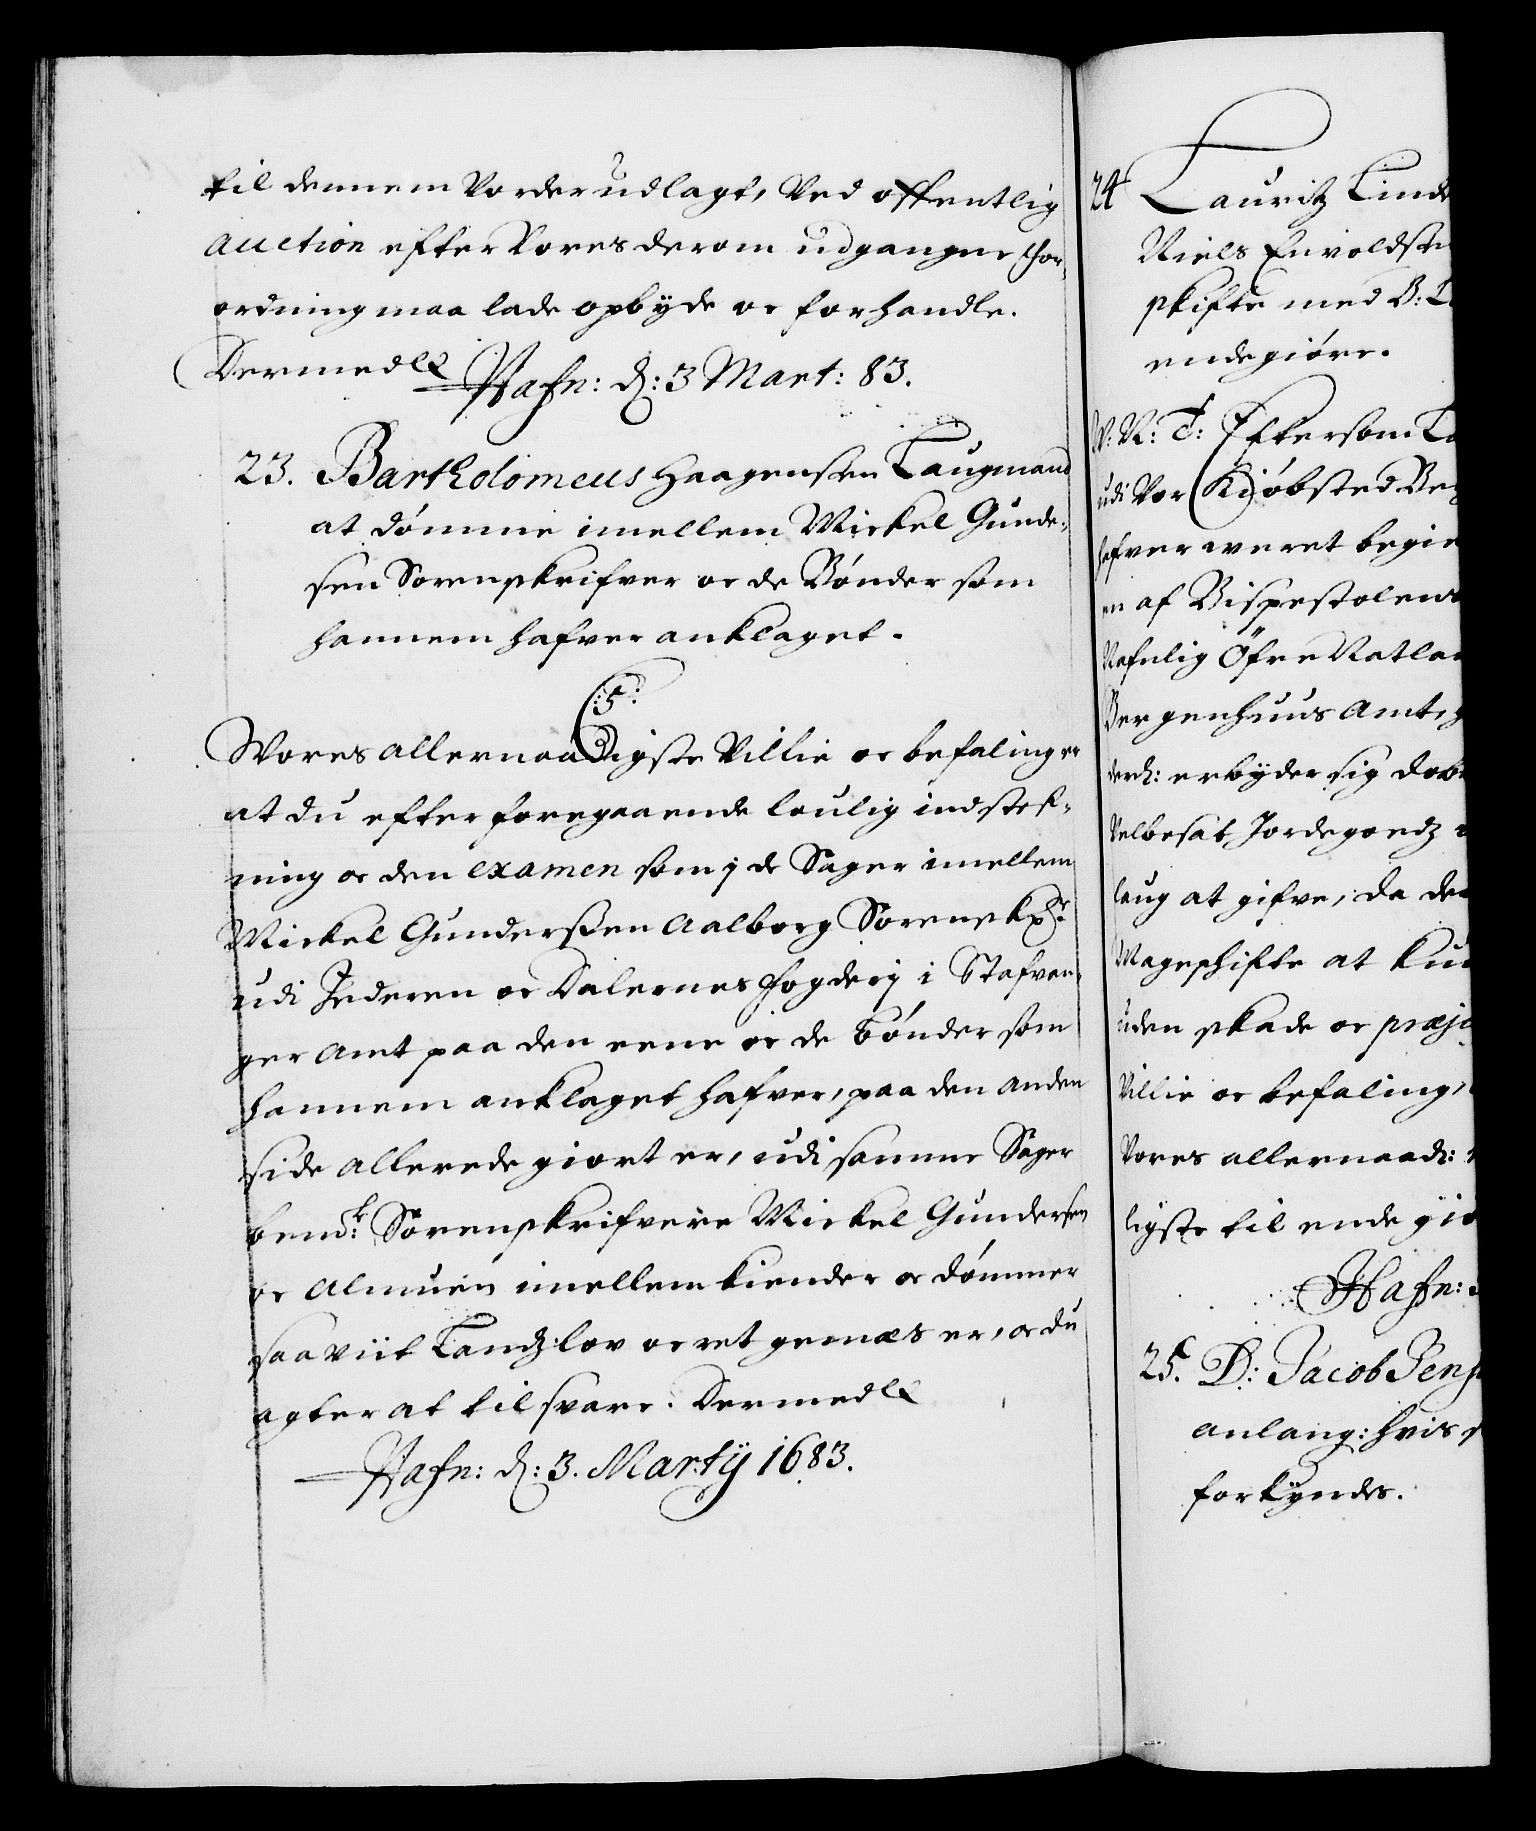 til dennem Vorder udlagt, Ved offentlig
auction efter Vores derom udgangne for-
ordning maa lade opbyde oc forhandle.
Dermed
Hafn: d: 3 Mart: 83.
23. Bartholomeus Haagensen Laugmand
at dömme imellem Mickel Gunder-
sen Sorenskrifver oc de Bönder som
hannem hafver anklaget.
:5:
Vores allernaadigste Villie oc befaling er
at du efter foregaaende loulig indstef-
ning oc den examen som j de Sager imellem
Mickel Gunderßen Aalborg Sorenskr
udi Jederen oc Dalernes fogderj i Stafvan-
ger Amt paa den eene oc de bönder som
hannem anklaget hafver, paa den anden
side allerede giort er, udi samme Sager
bemt: Sorenskrifvere Mickel Gundersen
oc Almuen imellem kiender oc dömmer
saa viit Landzlov oc ret gemæs er, oc du
agter at til svare. Dermed
Hafn: d: 3. Martij 1683.
24 Lauritz Linde
Niels Envoldse
skifte med B:
ende giöre.
W: N: T: Eftersom La
udi Vor Kiöbsted Ber
hafver weret begie
en af Bispestolens
Nafnlig Öfre Natlan
Bergenhuus Amt,
derh: erbyder sig dob
Velbesat Jordegoedz
laug at gifve, da de
Mageschifte at kun
uden skade oc præju
Villie oc befaling,
Vores allernaad:
ligste til ende giö
Hafn:
25. D: Jacob Jens
anlang: hvis
forkyndes.